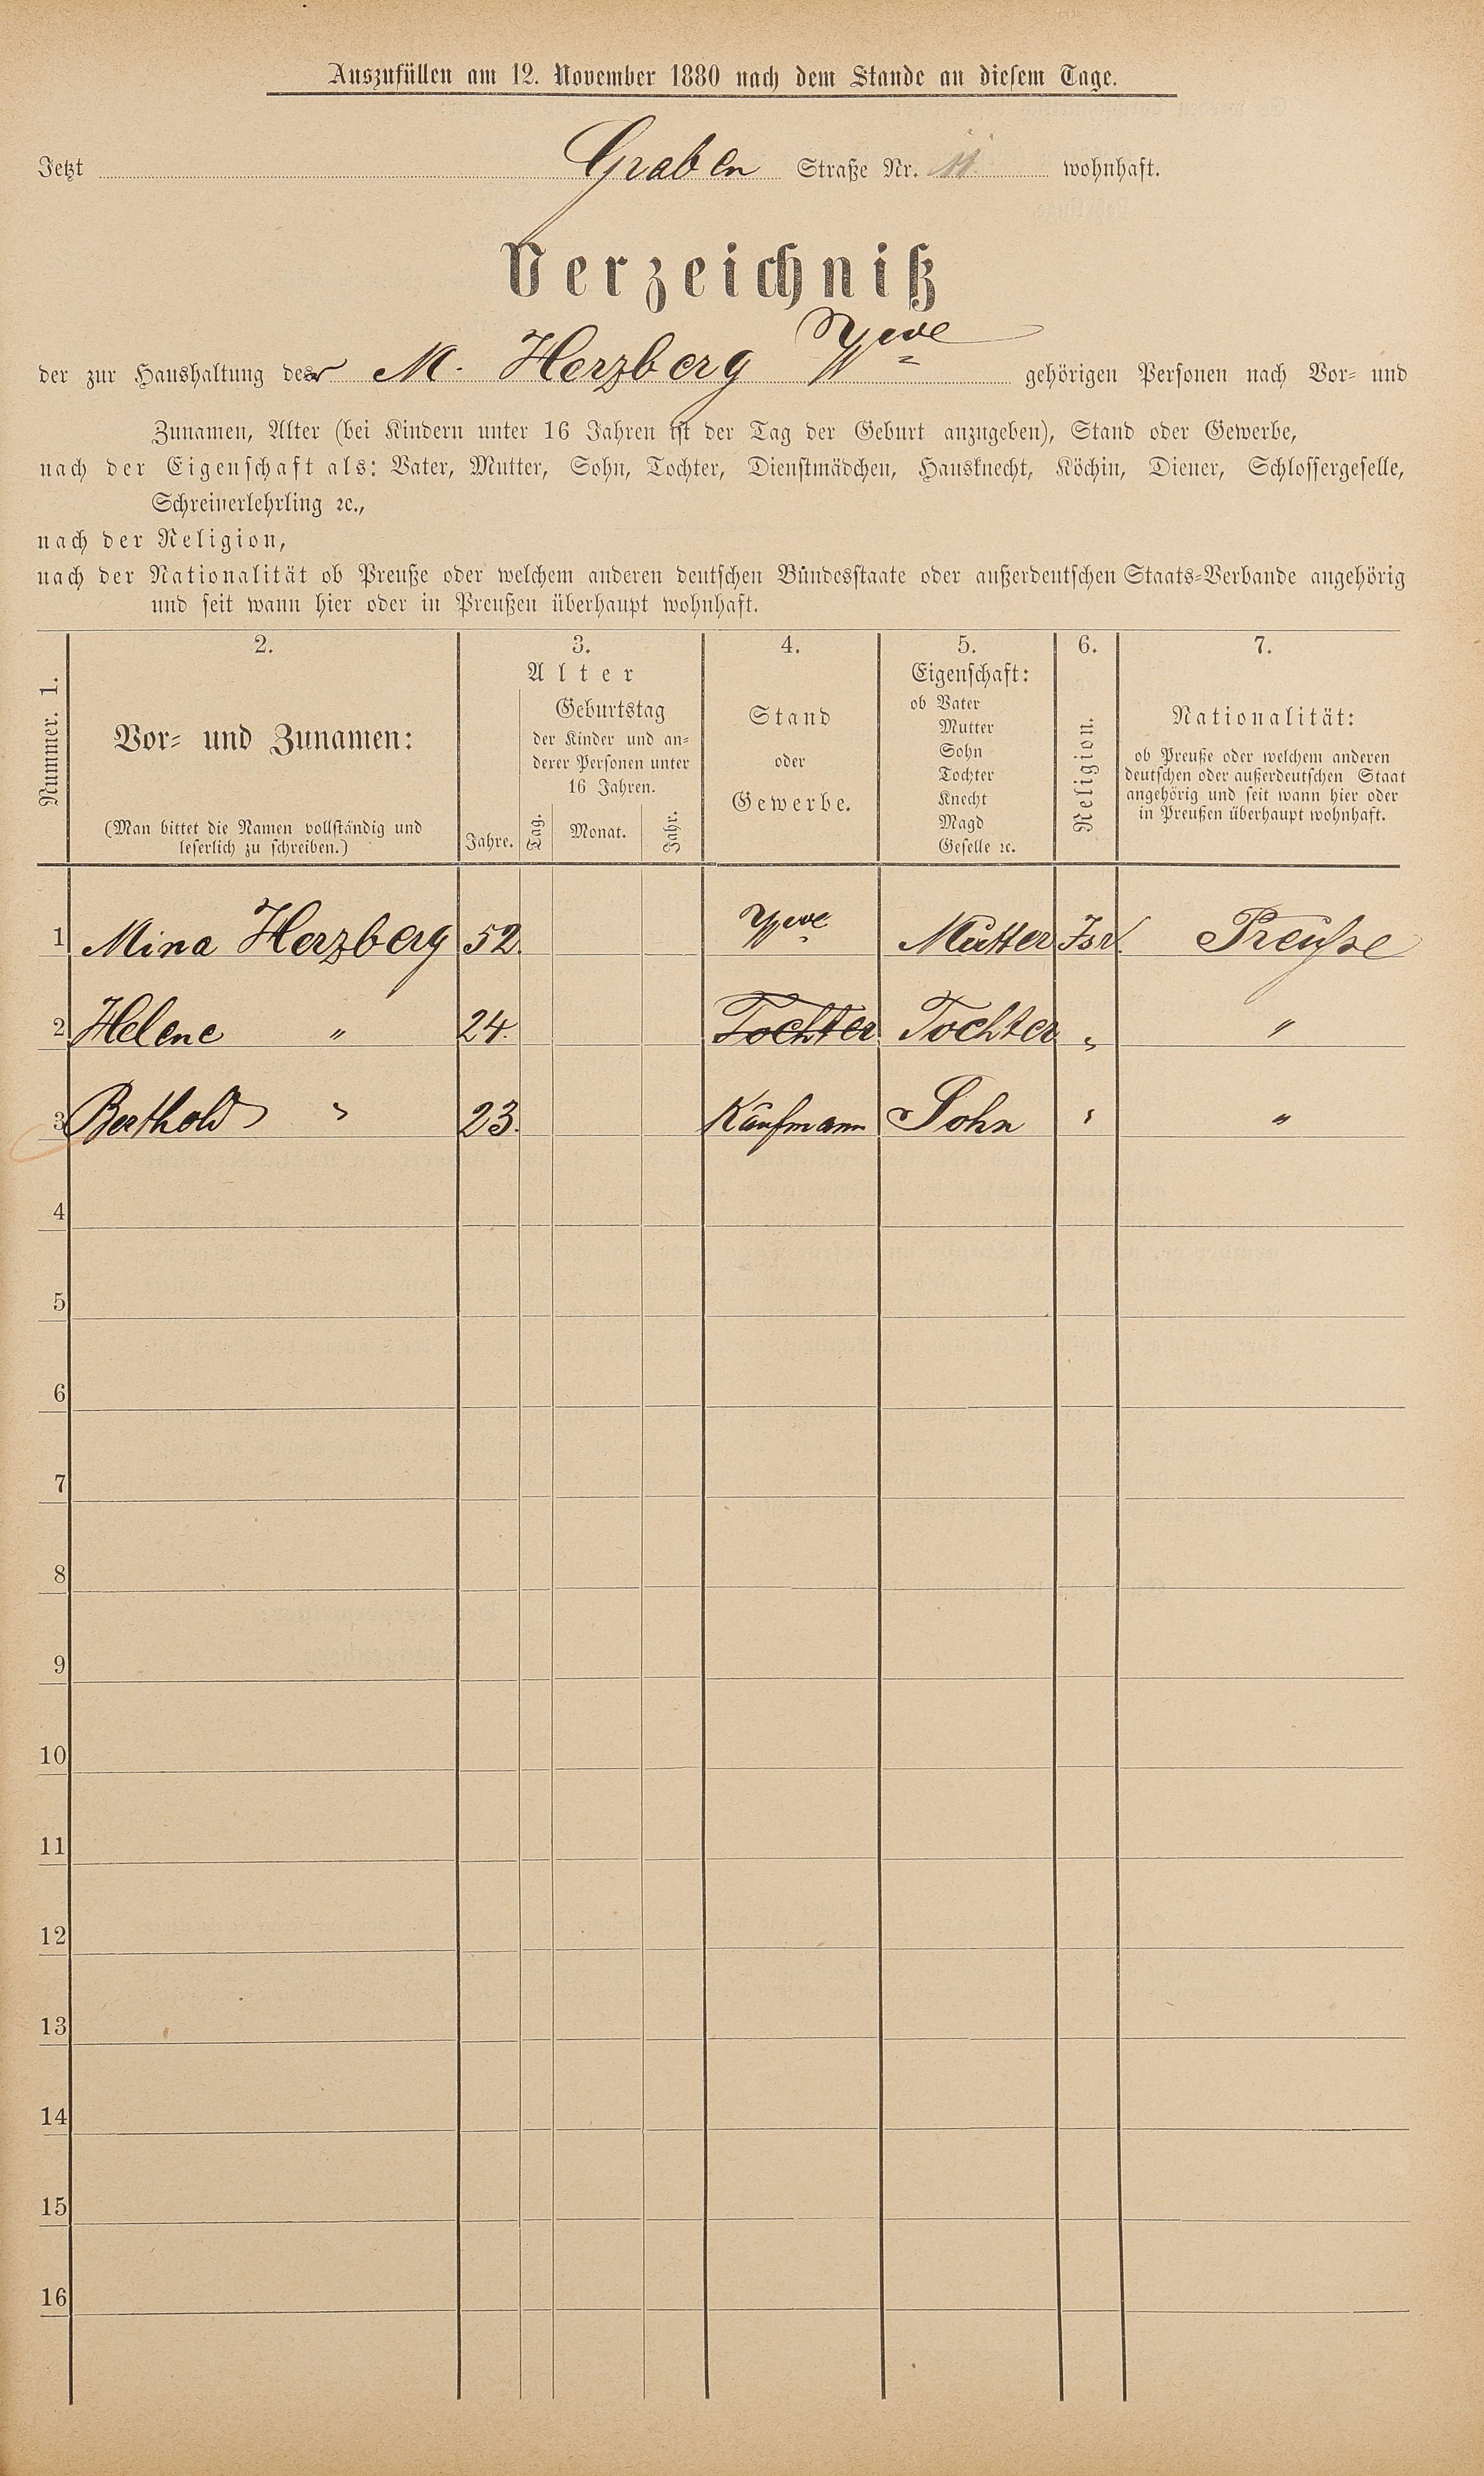 Auszufüllen am 12. November 1880 nach dem Stande an diesem Tage.
Jetzt Graben Straße Nr. 11. wohnhaft.
Verzeichniß
der zur Haushaltung der M. Herzberg Wwe gehörigen Personen nach Vor- und
Zunamen, Alter (bei Kindern unter 16 Jahren ist der Tag der Geburt anzugeben), Stand oder Gewerbe,
nach der Eigenschaft als: Vater, Mutter, Sohn, Tochter, Dienstmädchen, Hausknecht, Köchin, Diener, Schlossergeselle,
Schreinerlehrling ꝛc.,
nach der Religion,
nach der Nationalität ob Preuße oder welchem anderen deutschen Bundesstaate oder außerdeutschen Staats-Verbande angehörig
und seit wann hier oder in Preußen überhaupt wohnhaft.
Nummer. 1.
2.
Vor- und Zunamen:
(Man bittet die Namen vollständig und
leserlich zu schreiben.)
3.
Alter
Geburtstag
der Kinder und an-
derer Personen unter
16 Jahren.
Jahre. Tag. Monat. Jahr.
4.
Stand
oder
Gewerbe.
5.
Eigenschaft:
ob Vater
Mutter
Sohn
Tochter
Knecht
Magd
Geselle ꝛc.
6.
Religion.
7.
Nationalität:
ob Preuße oder welchem anderen
deutschen oder außerdeutschen Staat
angehörig und seit wann hier oder
in Preußen überhaupt wohnhaft.
1 Mina Herzberg 52. Wwe Mutter Isr. Preuße
2 Helene " 24. Tochter Tochter " "
3 Berthold " 23. Kaufmann Sohn " "
4
5
6
7
8
9
10
11
12
13
14
15
16